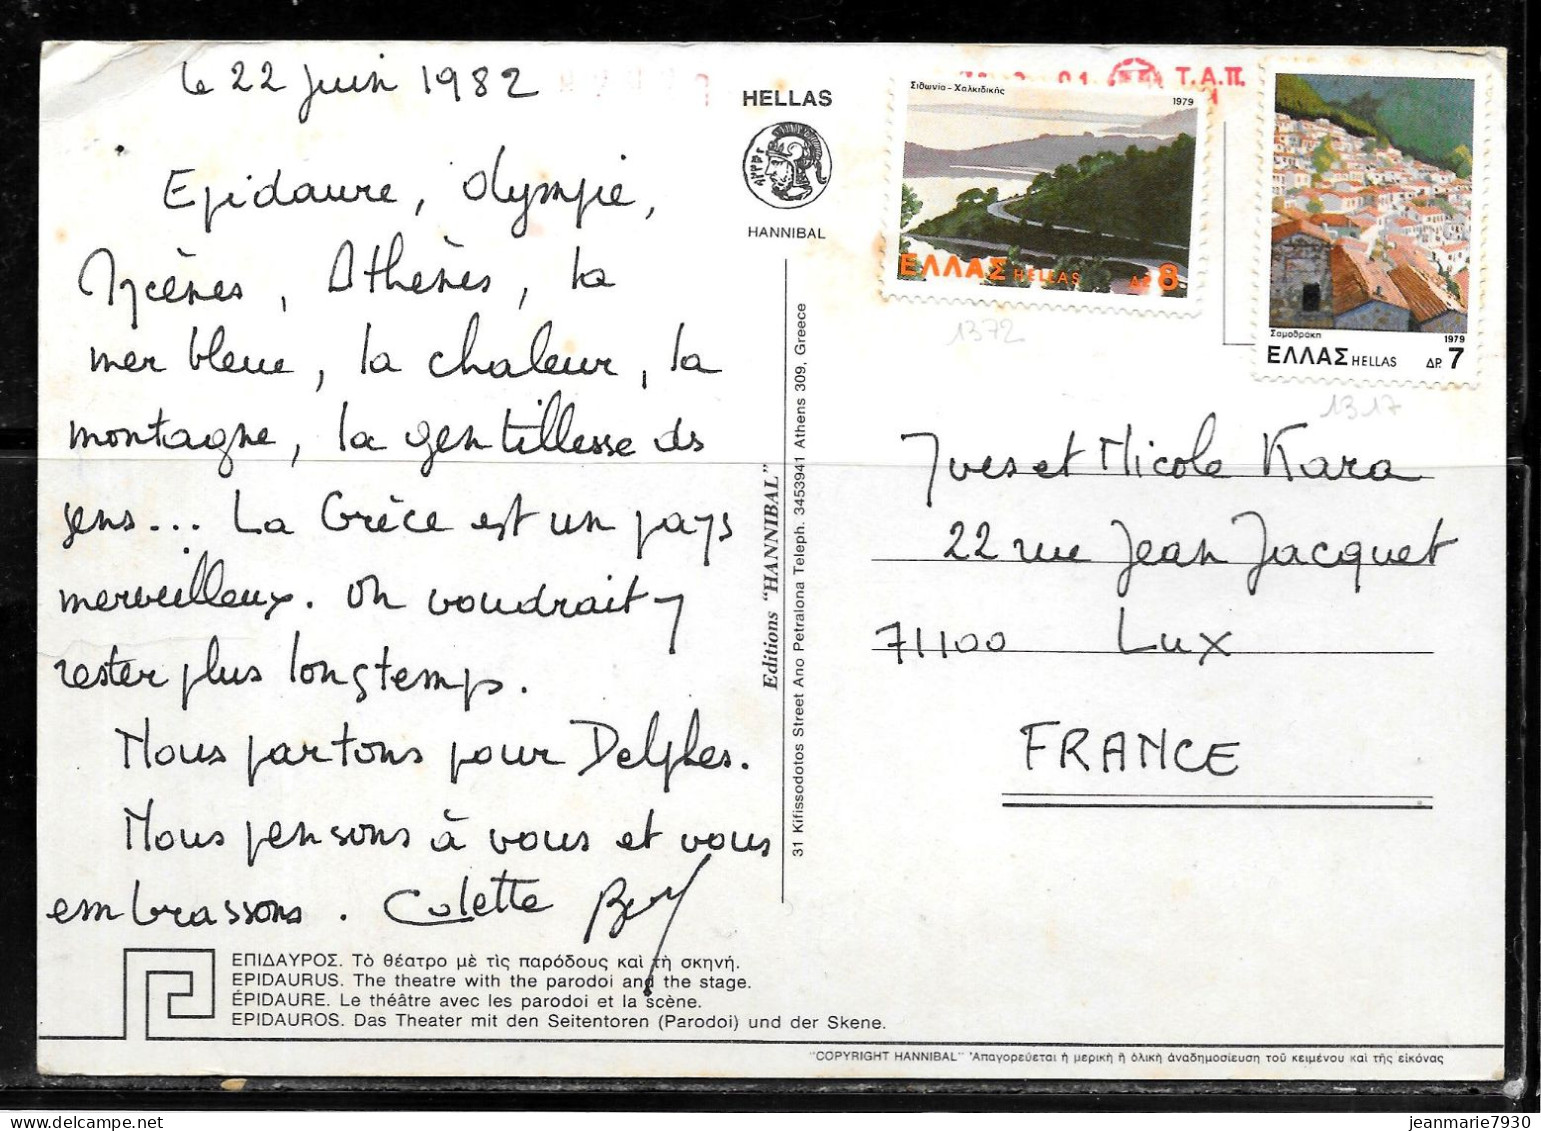 le 22 juin 1982
Epidaure, Olympie,
Mycènes, Athènes, la
mer bleue, la chaleur, la
montagne, la gentillesse des
gens... La Grèce est un pays
merveilleux. On voudrait y
rester plus longtemps.
Nous partons pour Delphes.
Nous pensons à vous et vous
embrassons. Colette
ΕΠΙΔΑΥΡΟΣ. Τὸ θέατρο μὲ τὶς παρόδους καὶ τὴ σκηνή.
EPIDAURUS. The theatre with the parodoi and the stage.
ÉPIDAURE. Le théâtre avec les parodoi et la scène.
EPIDAUROS. Das Theater mit den Seitentoren (Parodoi) und der Skene.
HELLAS
HANNIBAL
Editions "HANNIBAL"
31 Kifissodotos Street Ano Petralona Teleph. 3453941 Athens 309, Greece
Τ.Α.Π.
Σιθωνία - Χαλκιδικής
1979
ΕΛΛΑΣ HELLAS ΔΡ. 8
1372
Σαμοθράκη
1979
ΕΛΛΑΣ HELLAS ΔΡ. 7
1317
Yves et Nicole Kara
22 rue Jean Jacquet
71100 Lux
FRANCE
"COPYRIGHT HANNIBAL" Ἀπαγορεύεται ἡ μερικὴ ἢ ὁλικὴ ἀναδημοσίευση τοῦ κειμένου καὶ τῆς εἰκόνας
jeanmarie7930